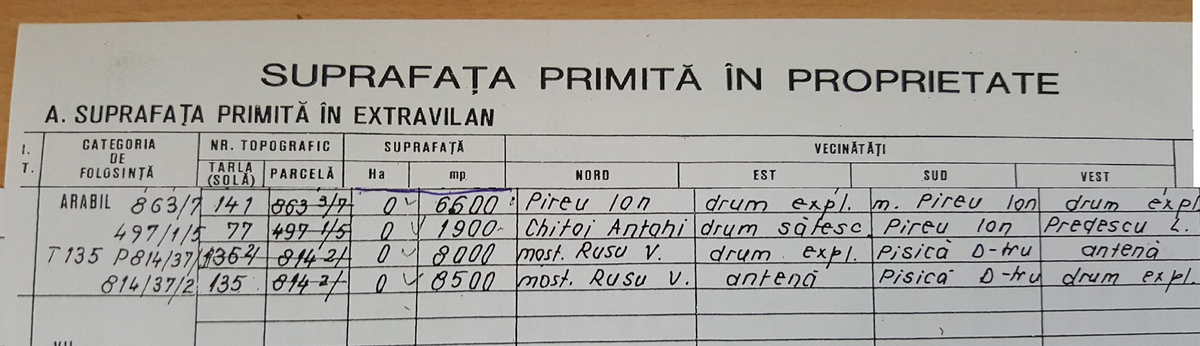 SUPRAFAȚA PRIMITĂ ÎN PROPRIETATE
A. SUPRAFAȚA PRIMITĂ ÎN EXTRAVILAN
I. T. CATEGORIA DE FOLOSINȚĂ NR. TOPOGRAFIC SUPRAFAȚĂ VECINĂTĂȚI
TARLA (SOLĂ) PARCELĂ Ha mp NORD EST SUD VEST
ARABIL 863/7 141 863 3/7 0 6600 Pireu Ion drum expl. m. Pireu Ion drum expl.
497/1/5 77 497 1/5 0 1900 Chitoi Antohi drum sătesc Pireu Ion Predescu L.
T135 P814/37/ 814 2/ 0 8000 moșt. Rusu V. drum expl. Pisică D-tru antenă
814/37/2 135 814 2/ 0 8500 moșt. Rusu V. antenă Pisică D-tru drum expl.